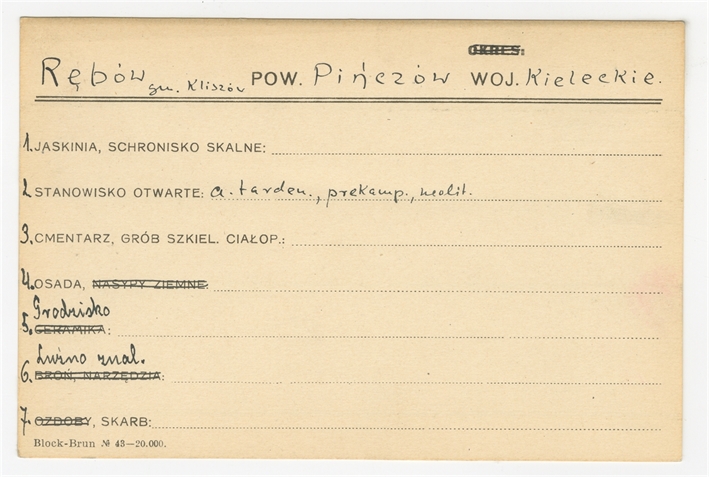 OKRES:
Rębów gm. Kliszów POW. Pińczów WOJ. Kieleckie.
1. JASKINIA, SCHRONISKO SKALNE:
2 STANOWISKO OTWARTE: a. tarden., prekamp., neolit.
3. CMENTARZ, GRÓB SZKIEL. CIAŁOP.:
4. OSADA, NASYPY ZIEMNE:
Grodzisko
5. CERAMIKA:
Luźno znal.
6. BROŃ, NARZĘDZIA:
7. OZDOBY, SKARB:
Block-Brun № 43—20.000.